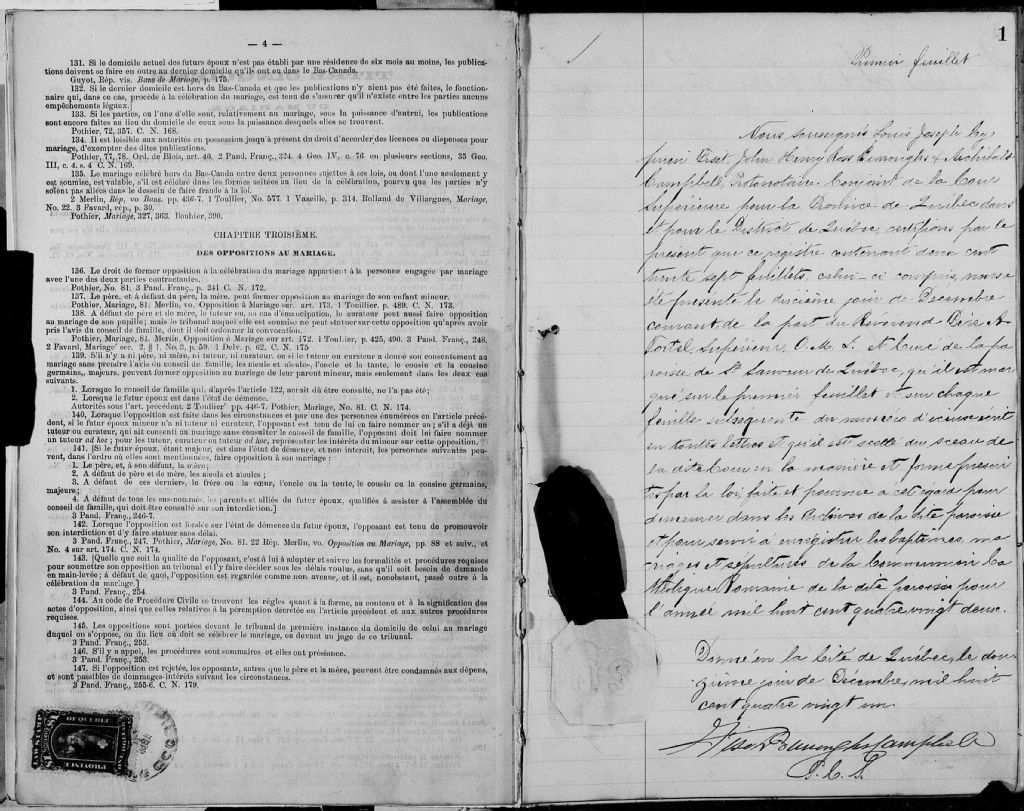 — 4 —
131. Si le domicile actuel des futurs époux n'est pas établi par une résidence de six mois au moins, les publica-
tions doivent se faire en outre au dernier domicile qu'ils ont eu dans le Bas-Canada.
Guyot, Rép. vis. Bans de Mariage, p. 175.
132. Si le dernier domicile est hors du Bas-Canada et que les publications n'y aient pas été faites, le fonction-
naire qui, dans ce cas, procède à la célébration du mariage, est tenu de s'assurer qu'il n'existe entre les parties aucuns
empêchements légaux.]
133. Si les parties, ou l'une d'elle sont, relativement au mariage, sous la puissance d'autrui, les publications
sont encore faites au lieu du domicile de ceux sous la puissance desquels elles se trouvent.
Pothier, 72, 357. C. N. 168.
134. Il est loisible aux autorités en possession jusqu'à présent du droit d'accorder des licences ou dispenses pour
mariage, d'exempter des dites publications.
Pothier, 77, 78. Ord. de Blois, art. 40. 2 Pand. Franç., 324. 4 Geo. IV, c. 76 en plusieurs sections, 35 Geo.
III, c. 4, s. 4 C. N. 169.
135. Le mariage célébré hors du Bas-Canada entre deux personnes sujettes à ses lois, ou dont l'une seulement y
est soumise, est valable, s'il est célébré dans les formes usitées au lieu de la célébration, pourvu que les parties n'y
soient pas allées dans le dessein de faire fraude à la loi.
2 Merlin, Rép, vo Bans. pp. 436-7. 1 Toullier, No. 577. 1 Vazeille, p. 314. Rolland de Villargues, Mariage,
No. 22. 3 Favard, rép., p. 30.
Pothier, Mariage, 327, 363. Bouhier, 390.
CHAPITRE TROISIÈME.
DES OPPOSITIONS AU MARIAGE.
136. Le droit de former opposition à la célébration du mariage appartient à la personne engagée par mariage
avec l'une des deux parties contractantes.
Pothier, No. 81. 3 Pand. Franç., p. 241 C. N. 172.
137. Le père, et à défaut du père, la mère, peut former opposition au mariage de son enfant mineur.
Pothier, Mariage, 81. Merlin, vo. Opposition à Mariage sur. art. 173. 1 Toullier. p. 489. C. N. 173.
138. A défaut de père et de mère, le tuteur ou, au cas d'émancipation, le curateur peut aussi faire opposition
au mariage de son pupille; mais le tribunal auquel elle est soumise ne peut statuer sur cette opposition qu'après avoir
pris l'avis du conseil de famille, dont il doit ordonner la convocation.
Pothier, Mariage, 81. Merlin, Opposition à Mariage sur art. 172. 1 Toullier, p. 425, 490. 3 Pand. Franç., 248.
2 Favard, Mariage sec. 2, § 1. No. 3, p. 59. 1 Delv. p. 62. C. N. 175
139. S'il n'y a ni père, ni mère, ni tuteur, ni curateur, ou si le tuteur ou curateur a donné son consentement au
mariage sans prendre l'avis du conseil de famille, les aïeuls et aïeules, l'oncle et la tante, le cousin et la cousine
germains, majeurs, peuvent former opposition au mariage de leur parent mineur, mais seulement dans les deux cas
suivants.
1. Lorsque le conseil de famille qui, d'après l'article 122, aurait dû être consulté, ne l'a pas été;
2. Lorsque le futur époux est dans l'état de démence.
Autorités sous l'art. précédent. 2 Toullier pp. 446-7. Pothier, Mariage, No. 81. C. N. 174.
140. Lorsque l'opposition est faite dans les circonstances et par une des personnes énumérées en l'article précé-
dent, si le futur époux mineur n'a ni tuteur ni curateur, l'opposant est tenu de lui en faire nommer un; s'il a déjà un
tuteur ou curateur, qui ait consenti au mariage sans consulter le conseil de famille, l'opposant doit lui faire nommer
un tuteur ad hoc; pour les tuteur, curateur ou tuteur ad hoc, représenter les intérêts du mineur sur cette opposition.
141. [Si le futur époux, étant majeur, est dans l'état de démence, et non interdit, les personnes suivantes peu-
vent, dans l'ordre où elles sont mentionnées, faire opposition à son mariage:
1. Le père, et, à son défaut, la mère;
2. A défaut de père et de mère, les aïeuls et aïeules;
3. A défaut de ces derniers, le frère ou la sœur, l'oncle ou la tante, le cousin ou la cousine germains,
majeurs;
4. A défaut de tous les sus-nommés, les parents et alliés du futur époux, qualifiés à assister à l'assemblée du
conseil de famille, qui doit être consulté sur son interdiction.]
3 Pand. Franç., 246-7.
142. Lorsque l'opposition est fondée sur l'état de démence du futur époux, l'opposant est tenu de promouvoir
son interdiction et d'y faire statuer sans délai.
3 Pand. Franç., 247. Pothier, Mariage, No. 81. 22 Rép. Merlin, vo. Opposition au Mariage, pp. 88 et suiv., et
No. 4 sur art. 174. C. N. 174.
143. [Quelle que soit la qualité de l'opposant, c'est à lui à adopter et suivre les formalités et procédures requises
pour soumettre son opposition au tribunal et l'y faire décider sous les délais voulus, sans qu'il soit besoin de demande
en main-levée; à défaut de quoi, l'opposition est regardée comme non avenue, et il est, nonobstant, passé outre à la
célébration du mariage.]
3 Pand. Franç., 254.
144. Au code de Procédure Civile se trouvent les règles quant à la forme, au contenu et à la signification des
actes d'opposition, ainsi que celles relatives à la péremption décrétée en l'article précédent et aux autres procédures
requises.
145. Les oppositions sont portées devant le tribunal de première instance du domicile de celui au mariage
duquel on s'oppose, ou du lieu où doit se célébrer le mariage, ou devant un juge de ce tribunal.
3 Pand. Franç., 253.
146. S'il y a appel, les procédures sont sommaires et elles ont préséance.
3 Pand. Franç., 253.
147. Si l'opposition est rejetée, les opposants, autres que le père et la mère, peuvent être condamnés aux dépens,
et sont passibles de dommages-intérêts suivant les circonstances.
3 Pand. Franç., 255-6. C. N. 179.
LAW STAMP
OF QUEBEC
PROVINCE
1
Premier feuillet
Nous soussignés Louis Joseph Cy-
prien Fiset, John Henry Ross Burroughs & Archibald
Campbell, Protonotaire Conjoint de la Cour
Supérieure pour la Province de Québec dans
et pour le District de Québec, certifions par le
présent que ce registre contenant deux cent
trente sept feuillets, celui-ci compris, nous a
été présenté le dixième jour de Decembre
courant de la part du Révérend Père A
Fortel, Supérieur, O. M. I. et Curé de la pa
roisse de St Sauveur de Québec, qu'il est mar
qué sur le premier feuillet et sur chaque
feuille subséquente du numéro d'icelui écrit
en toutes lettres et qu'il est scellé du sceau de
la dite Cour en la manière et forme prescri
tes par la loi, faite et pourvue à cet égard pour
demeurer dans les Archives de la dite paroisse
et pour servir à enregistrer les baptêmes, ma
riages et sépultures de la Communion Ca
tholique Romaine de la dite paroisse pour
l'année mil huit cent quatre vingt deux.
Donné en la Cité de Québec, le dou-
zième jour de Decembre, mil huit
cent quatre vingt un
Fiset Burroughs Campbell
P. C. S.